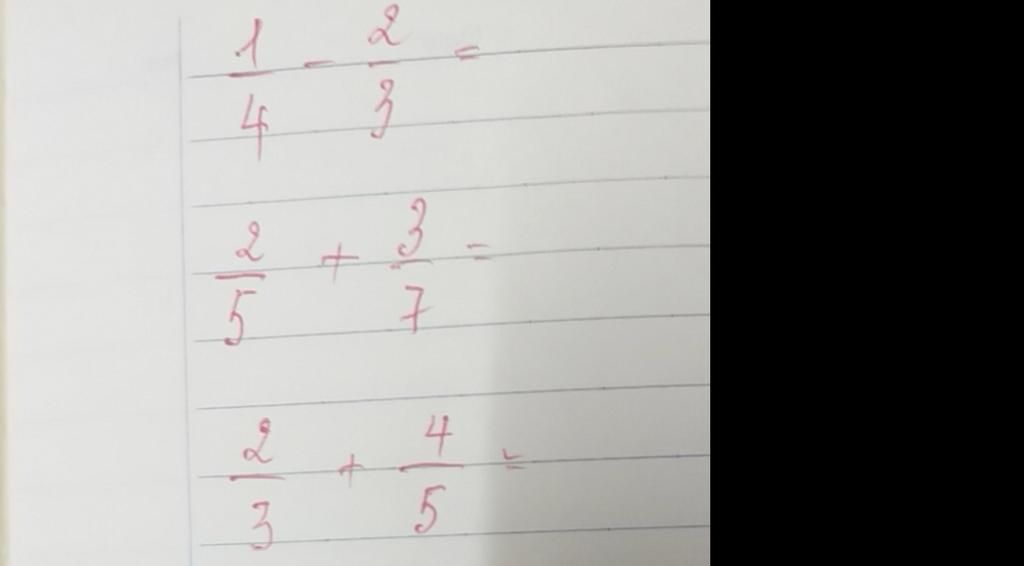 1/4 - 2/3 =
2/5 + 3/7 =
2/3 + 4/5 =